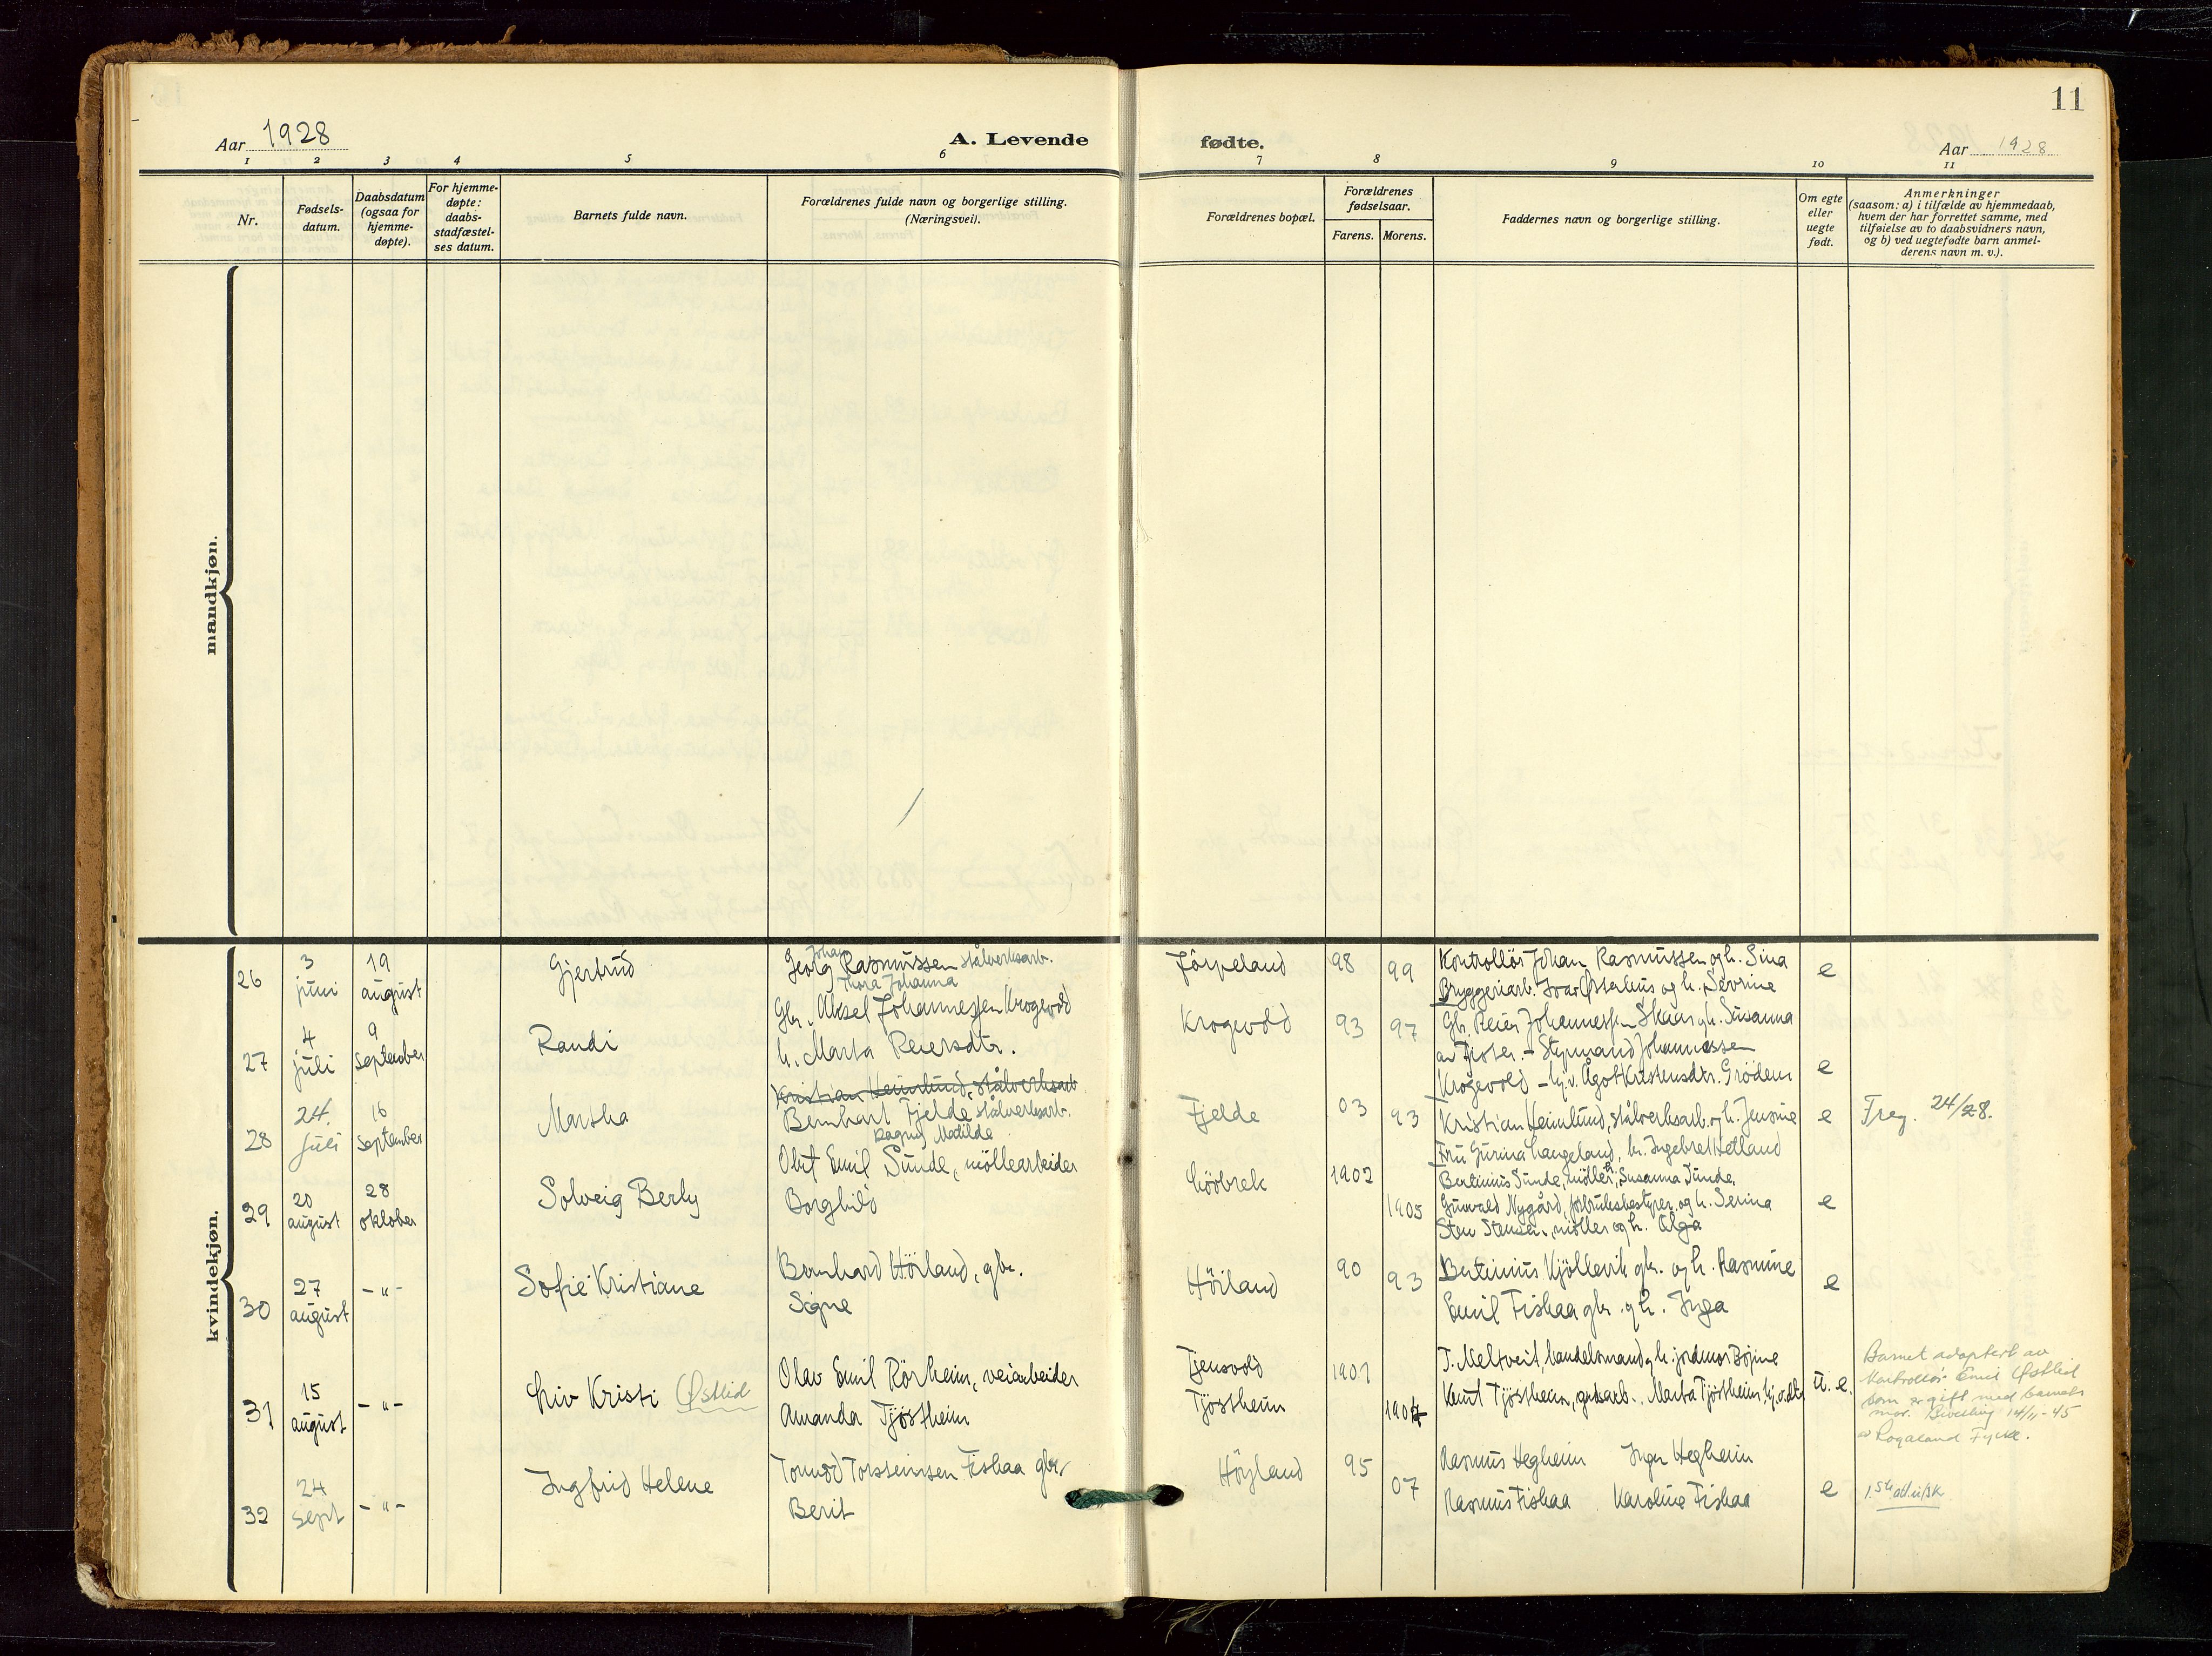 11
Aar 1928
A. Levende
fødte.
Aar 1928
1 2 3 4 5 6 7 8 9 10 11
Nr.
Fødsels-
datum.
Daabsdatum
(ogsaa for
hjemme-
døpte).
For hjemme-
døpte:
daabs-
stadfæstel-
ses datum.
Barnets fulde navn.
Forældrenes fulde navn og borgerlige stilling.
(Næringsvei).
Forældrenes bopæl.
Forældrenes
fødselsaar.
Farens. Morens.
Faddernes navn og borgerlige stilling.
Om egte
eller
uegte
født.
Anmerkninger
(saasom: a) i tilfælde av hjemmedaab,
hvem der har forrettet samme, med
tilføielse av to daabsvidners navn,
og b) ved uegtefødte barn anmel-
derens navn m. v.).
mandkjøn.
kvindekjøn.
26
3
juni
19
august
Gjertrud
Johan
Georg Rasmussen stålverksarb.
Thora Johanna
Jörpeland
98
99
Kontrollör Johan Rasmussen og h. Sina
Bryggeriarb. Ivar Østerhus og h. Sevrine
e
27
4
juli
9
september
Randi
Gbr. Aksel Johannessen Krogevold
h. Marta Reiersdtr.
Krogevold
93
97
Gbr. Reier Johannessen Skaar og h. Susanna
Styrmand Johannessen
Krogevold - hj.v. Ågot Kristensdtr. Grödem
e
28
24.
juli
16
september
Martha
Kristian Heimlund, stålverksarb
Bernhart Fjelde stålverksarb.
Ragna Matilde
Fjelde
03
93
Kristian Heimlund, stålverksarb. og h. Jensine
Fru Gurina Langeland, br. Ingebret Hetland
e
Freg. 24/28.
29
20
august
28
oktober
Solveig Berly
Olaf Emil Sunde, möllearbeider
Borghild
Lööbrek
1902
1905
Bertinius Sunde, möller, Susanna Sunde,
Gunvald Nygård, forbruksbestyrer og h. Serina
Sten Stensen, möller og h. Olga
e
30
27
august
- " -
Sofie Kristiane
Bernhard Hörland, gbr.
Signe
Höiland
90
93
Bertinius Kjöllevik gbr. og h. Rasmine
Emil Fiskaa gbr. og h. Inga
e
31
15
august
- " -
Liv Kristi Østlid
Olav Emil Rörheim, veiarbeider
Amanda Tjöstheim
Tjensvold
Tjöstheim
1901
1907
T. Meltveit, handelsmand og h. jordmor Bojine
Knut Tjöstheim, gårdsarb., Marta Tjöstheim, hj.v. dtr
u. e.
Barnet adoptert av
kontrollör Emil Østlid
som er gift med barnets
mor. Bevilling 14/11-45
av Rogaland Fylke.
32
24
sept
- " -
Ingfrid Helene
Tormod Torsteinsen Fiskaa gbr.
Berit
Höyland
95
07
Rasmus Hegheim Inger Hegheim
Rasmus Fiskaa Karoline Fiskaa
e